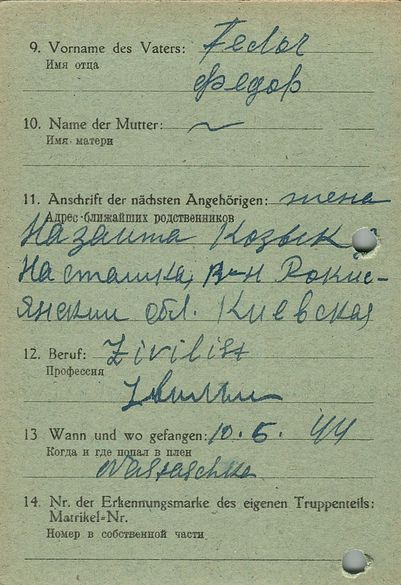 9. Vorname des Vaters: Fedor
Имя отца
Федор
10. Name der Mutter: ~
Имя матери
11. Anschrift der nächsten Angehörigen: жена
Адрес ближайших родственников
Козьык
Насташка, Р-н Рокит-
янский обл. Киевская
12. Beruf: Zivilist
Профессия
13 Wann und wo gefangen: 10. 5. 44
Когда и где попал в плен
Nastaschka
14. Nr. der Erkennungsmarke des eigenen Truppenteils:
Matrikel-Nr.
Номер в собственной части